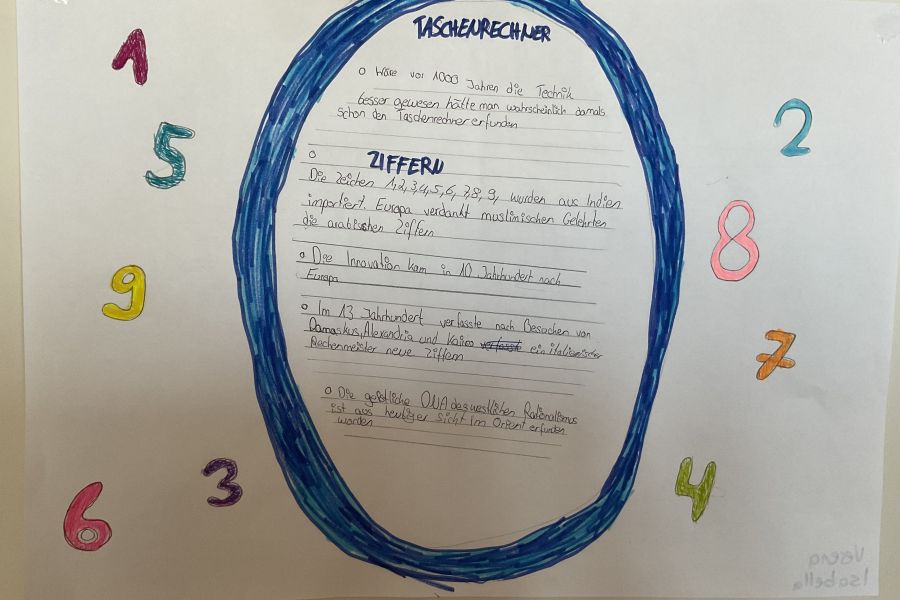 TASCHENRECHNER
o Wäre vor 1000 Jahren die Technik
besser gewesen hätte man wahrscheinlich damals
schon den Taschenrechner erfunden
o ZIFFERN
Die Zeichen 1,2,3,4,5,6,7,8,9, wurden aus Indien
importiert. Europa verdankt muslimischen Gelehrten
die arabischen Ziffern
o Die Innovation kam in 10 Jahrhundert nach
Europa
o Im 13 Jahrhundert verfasste nach Besuchen von
Damaskus, Alexandria und Kairo verfasste ein italienischer
Rechenmeister neue Ziffern
o Die geistliche DNA des westlichen Rationalismus
ist aus heutiger Sicht im Orient erfunden
worden
1
5
9
3
6
2
8
7
4
Verena
Isabella